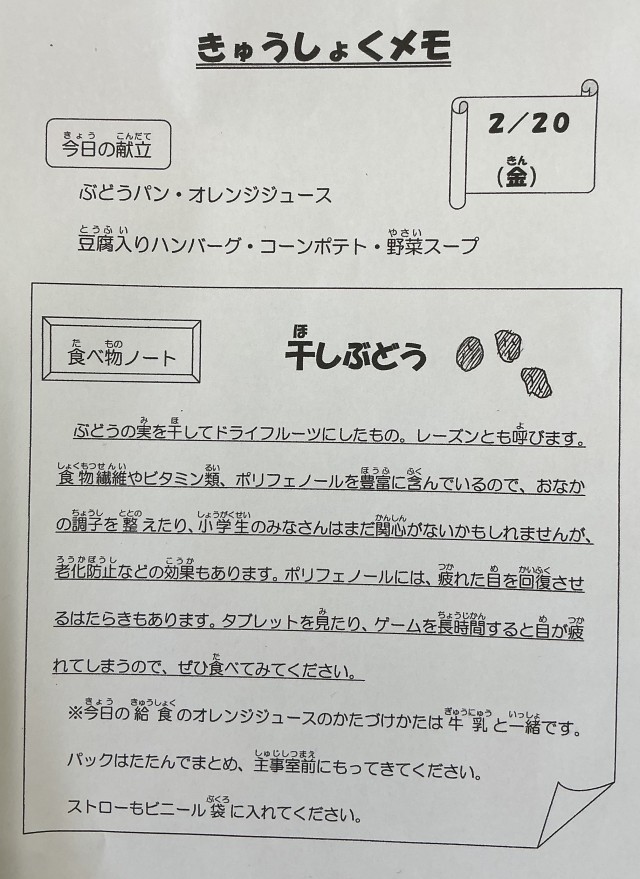 きゅうしょくメモ
2/20
(金)
今日の献立
ぶどうパン・オレンジジュース
豆腐入りハンバーグ・コーンポテト・野菜スープ
食べ物ノート
干しぶどう
ぶどうの実を干してドライフルーツにしたもの。レーズンとも呼びます。
食物繊維やビタミン類、ポリフェノールを豊富に含んでいるので、おなか
の調子を整えたり、小学生のみなさんはまだ関心がないかもしれませんが、
老化防止などの効果もあります。ポリフェノールには、疲れた目を回復させ
るはたらきもあります。タブレットを見たり、ゲームを長時間すると目が疲
れてしまうので、ぜひ食べてみてください。
※今日の給食のオレンジジュースのかたづけかたは牛乳と一緒です。
パックはたたんでまとめ、主事室前にもってきてください。
ストローもビニール袋に入れてください。